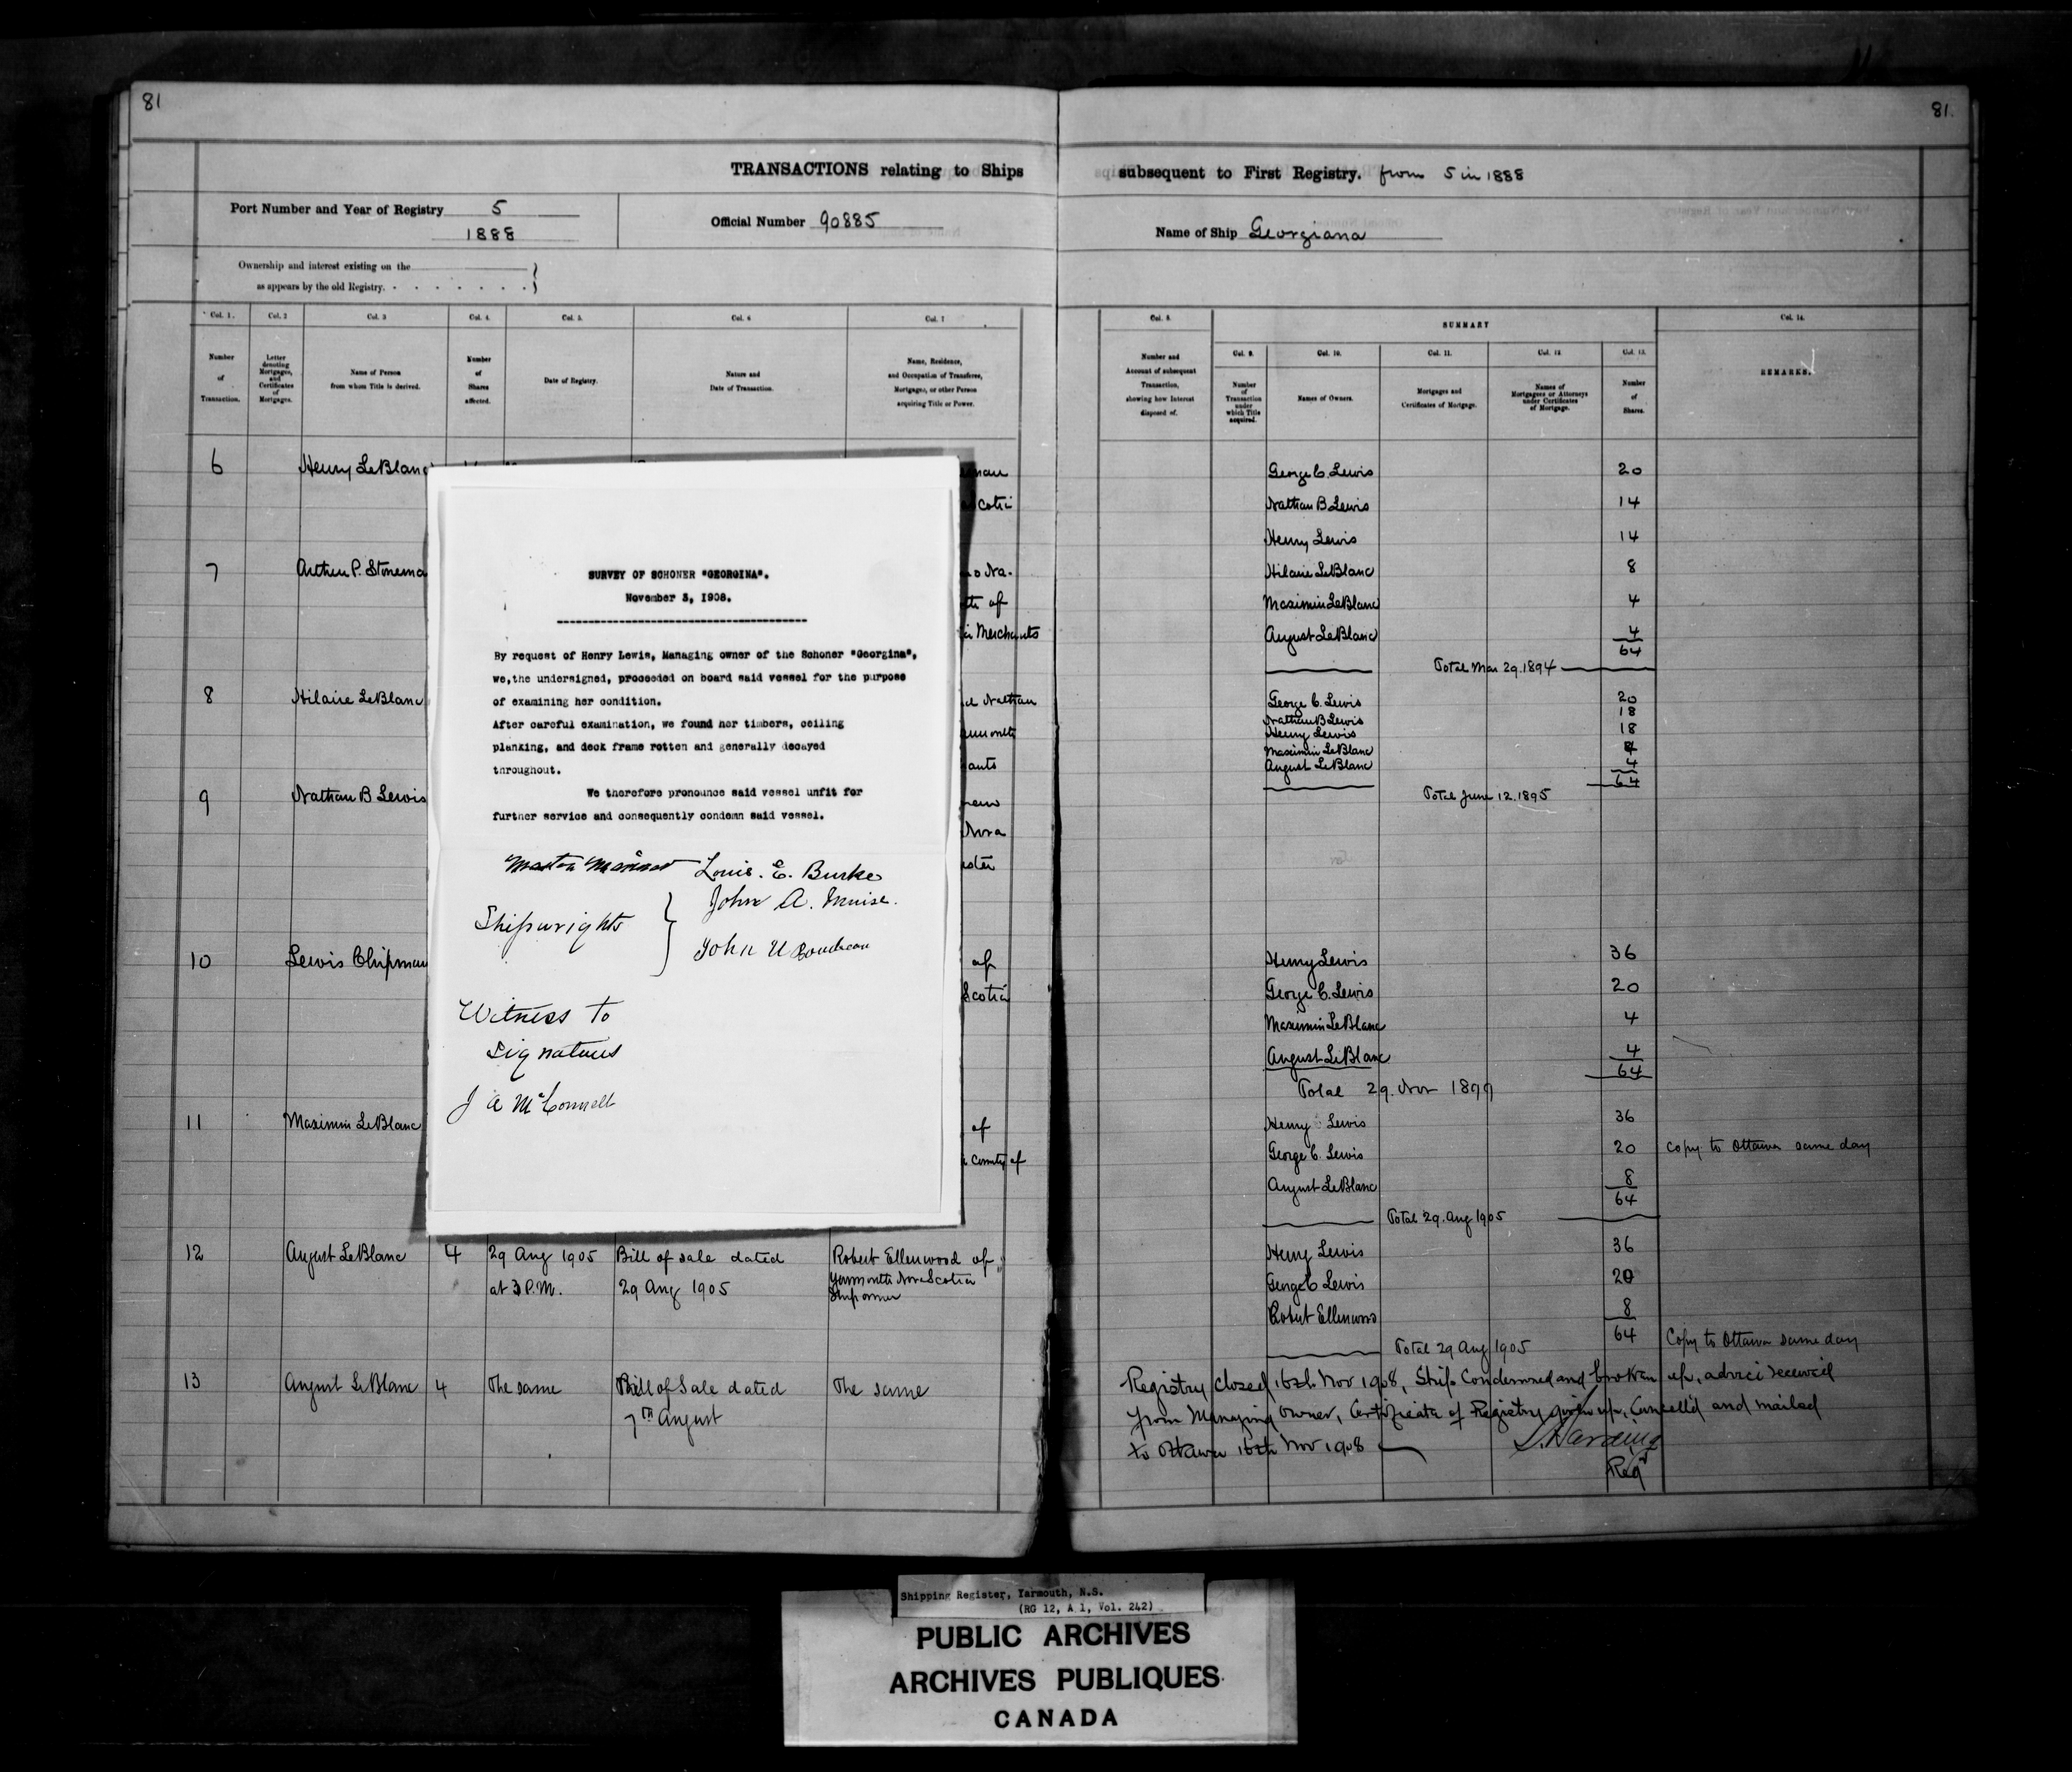 81
81
TRANSACTIONS relating to Ships
subsequent to First Registry. from 5 in 1888
Port Number and Year of Registry 5
1888
Official Number 90885
Name of Ship Georgiana
Ownership and interest existing on the
as appears by the old Registry.
Col. 1. Col. 2 Col. 3 Col. 4. Col. 5. Col. 6 Col. 7
Number of Transaction.
Letter denoting Mortgages, and Certificates of Mortgages.
Name of Person from whom Title is derived.
Number of Shares affected.
Date of Registry.
Nature and Date of Transaction.
Name, Residence, and Occupation of Transferee, Mortgagee, or other Person acquiring Title or Power.
Col. 8.
Number and Account of subsequent Transaction, showing how Interest disposed of.
SUMMARY
Col. 9. Col. 10. Col. 11. Col. 12 Col. 13.
Number of Transaction under which Title acquired.
Names of Owners.
Mortgages and Certificates of Mortgage.
Names of Mortgagees or Attorneys under Certificates of Mortgage.
Number of Shares.
Col. 14.
REMARKS.
6 Henry LeBlanc
Scotia
7 Arthur P. Stonema
of
Merchants
8 Hilaire LeBlanc
Nathan
9 Nathan B Lewis
Nova
10 Lewis Chipman
of
Scotia
11 Maximin LeBlanc
of
county of
12 August LeBlanc 4 29 Aug 1905 Bill of sale dated Robert Ellenwood of
at 3 P.M. 29 Aug 1905 Yarmouth Nova Scotia
Shipowner
13 August LeBlanc 4 The same Bill of Sale dated The same
7th August
SURVEY OF SCHONER "GEORGINA".
November 3, 1908.
By request of Henry Lewis, Managing owner of the Schoner "Georgina",
we,the undersigned, proceeded on board said vessel for the purpose
of examining her condition.
After careful examination, we found her timbers, ceiling
planking, and deck frame rotten and generally decayed
throughout.
We therefore pronounce said vessel unfit for
further service and consequently condemn said vessel.
Master Mariner Louis. E. Burke
Shipwrights } John A. Muise.
John U Boudreau
Witness to
Signatures
J A McConnell
George C. Lewis 20
Nathan B Lewis 14
Henry Lewis 14
Hilaire LeBlanc 8
Maximin LeBlanc 4
August LeBlanc 4
64
Total Mar 29. 1894
George C. Lewis 20
Nathan B Lewis 18
Henry Lewis 18
Maximin LeBlanc 4
August LeBlanc 4
64
Total June 12. 1895
Henry Lewis 36
George C. Lewis 20
Maximin LeBlanc 4
August LeBlanc 4
64
Total 29. Nov 1899
Henry Lewis 36
George C. Lewis 20 Copy to Ottawa same day
August LeBlanc 8
64
Total 29. Aug 1905
Henry Lewis 36
George C Lewis 20
Robert Ellenwood 8
64 Copy to Ottawa same day
Total 29 Aug 1905
Registry closed 16th Nov 1908, Ship Condemned and broken up, advice received
from Managing Owner, Certificate of Registry given up, Cancell'd and mailed
to Ottawa 16th Nov 1908
Harding
Regr
Shipping Register, Yarmouth, N.S.
(RG 12, A 1, Vol. 242)
PUBLIC ARCHIVES
ARCHIVES PUBLIQUES
CANADA